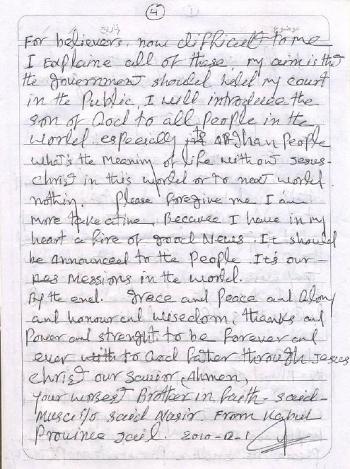 4
For believers, now difficult to me
I explaine all of these, my aim is that
the government should held my court
in the Public, I will introduce the
son of God to all people in the
world especially to Afghan People
what's the meaning of life without Jesus-
christ in this world or to next world
nothing. Please foregive me I am
more talkative. Because I have in my
heart a fire of good News. It should
be announced to the people It's our-
messions in the world.
By the end. Grace and Peace and Glory
and honour and wisedom, thanks and
Power and strenght to be forever and
ever to God father through Jesus
christ our Savior, Ahmen,
your worest Brother in faith - said-
Musa s/o said Nasir. From Kabul
Province Jail. 2010-12-1